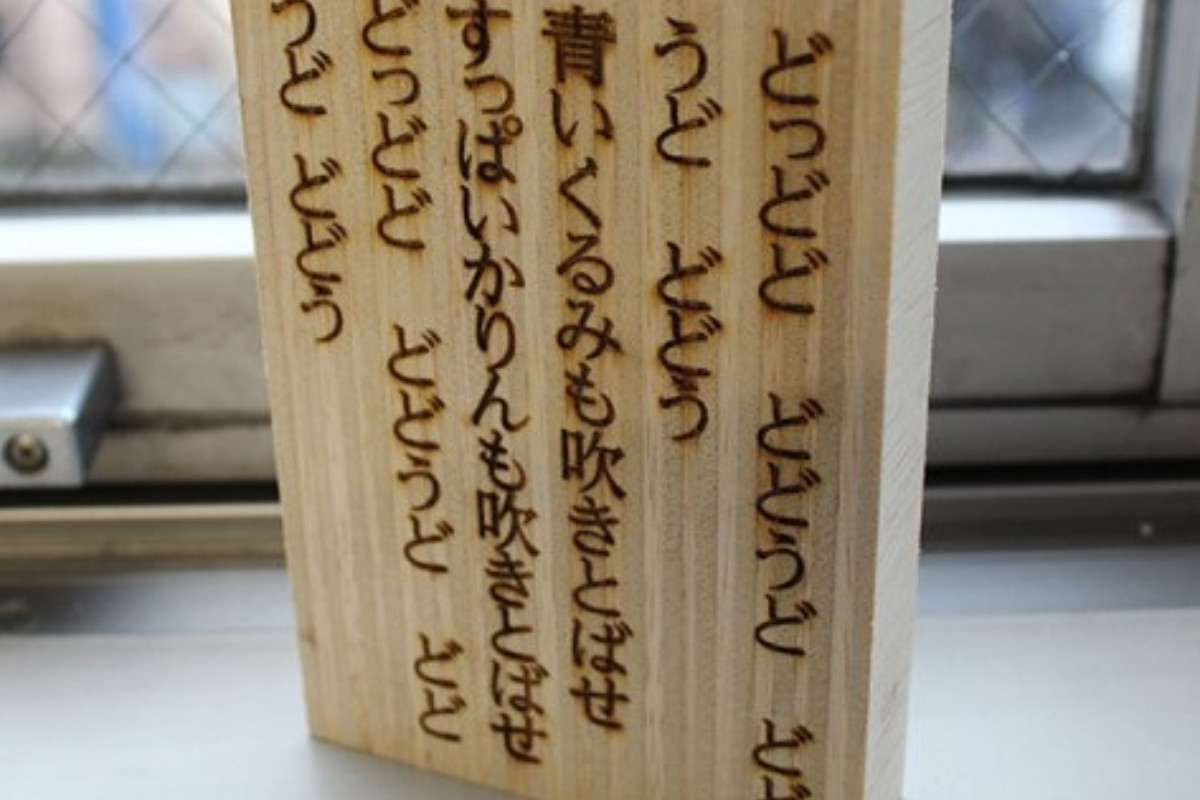 どっどど どどうど どど
うど どどう
青いくるみも吹きとばせ
すっぱいかりんも吹きとばせ
どっどど どどうど どど
うど どどう